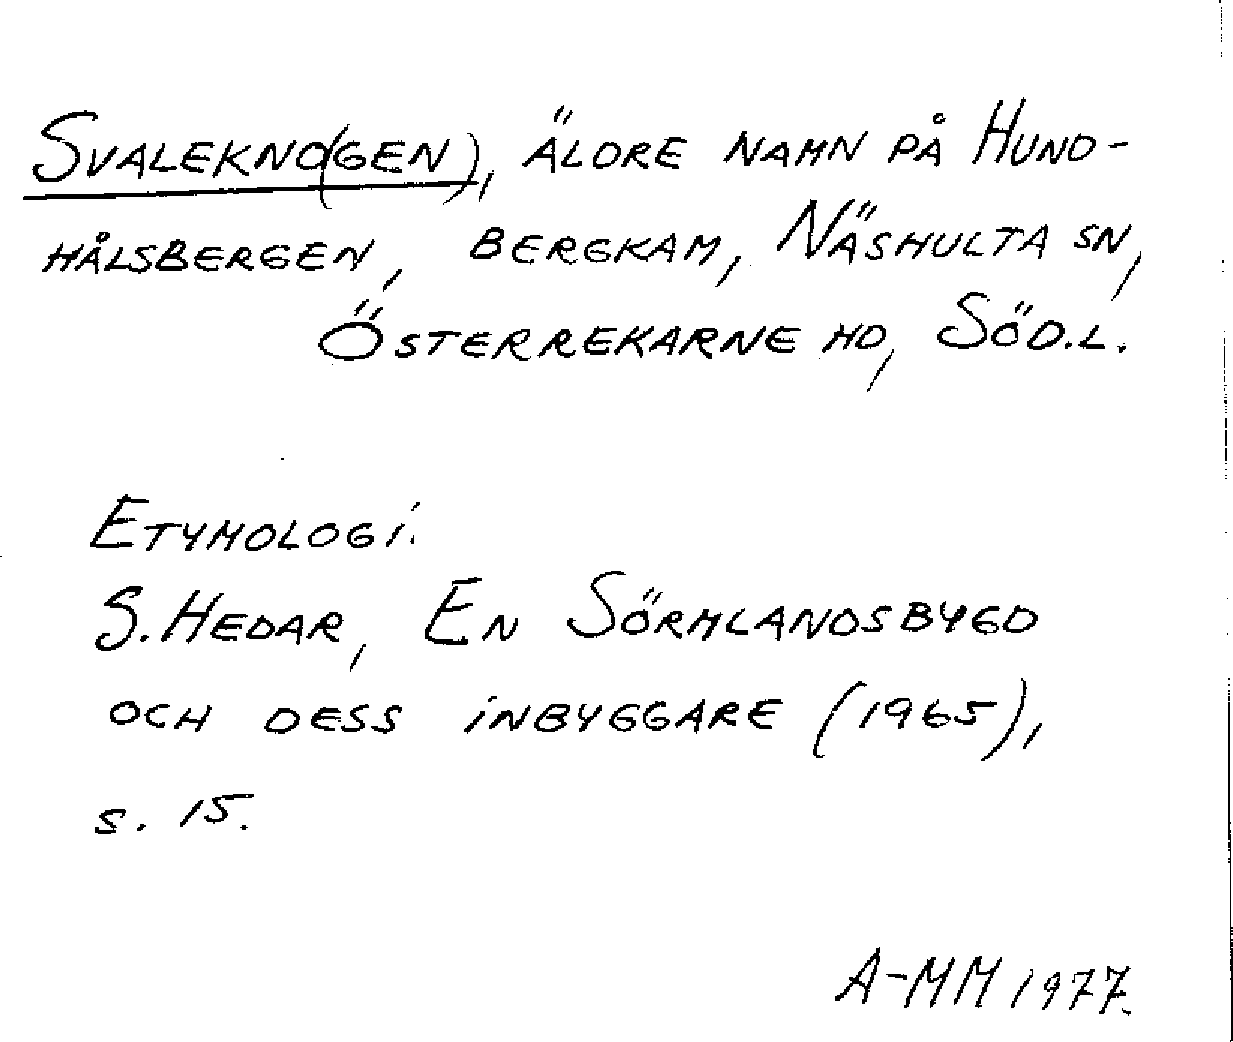 Svalekno(gen), äldre namn på Hund-
hålsbergen, bergkam, Näshulta sn,
Österrekarne hd, Söd.l.
Etymologi:
S. Hedar, En Sörmlandsbygd
och dess inbyggare (1965),
s. 15.
A-MM 1977.